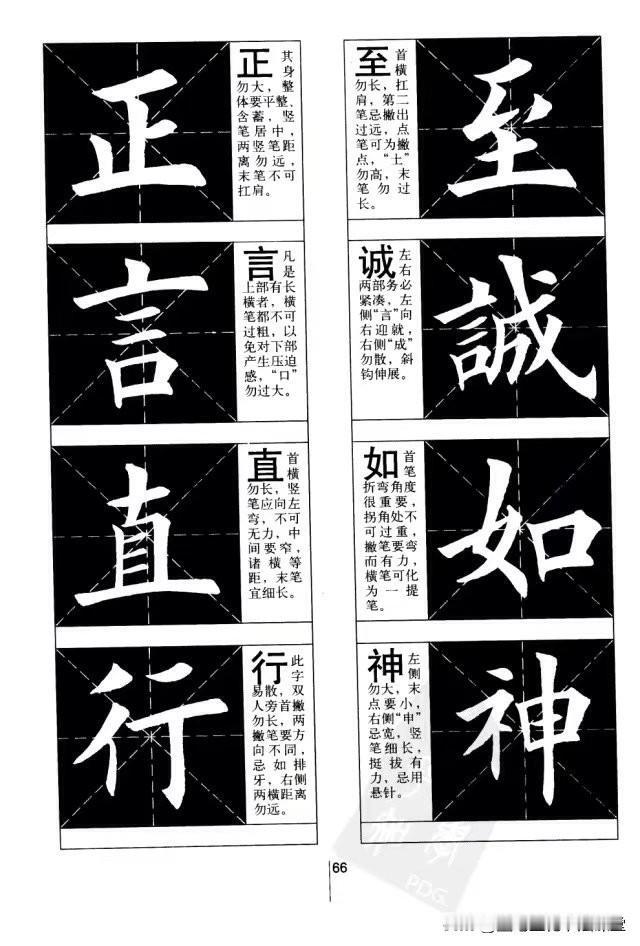 正
正 其
身
勿大，整
体要平整、
含蓄，竖
笔居中，
两竖笔距
离勿远，
末笔不可
扛肩。
言
言 凡
是
上部有长
横者，横
笔都不可
过粗，以
免对下部
产生压迫
感，“口”
勿过大。
直
直 首
横
勿长，竖
笔应向左
弯，不可
无力，中
间要窄，
诸横等
距，末笔
宜细长。
行
行 此
字
易散，双
人旁首撇
勿长，两
撇笔要方
向不同，
忌如排
牙，右侧
两横距离
勿远。
至 首
横
勿长，扛
肩，第二
笔忌撇出
过远，点
笔可为撇
点，“土”
勿高，末
笔勿过
长。
至
诚 左
右
两部务必
紧凑，左
侧“言”向
右迎就，
右侧“成”
勿散，斜
钩伸展。
誠
如 首
笔
折弯角度
很重要，
拐角处不
可过重，
撇笔要弯
而有力，
横笔可化
为一提
笔。
如
神 左
侧
勿大，末
点要小，
右侧“申”
忌宽，竖
笔细长，
挺拔有
力，忌用
悬针。
神
66
PDG